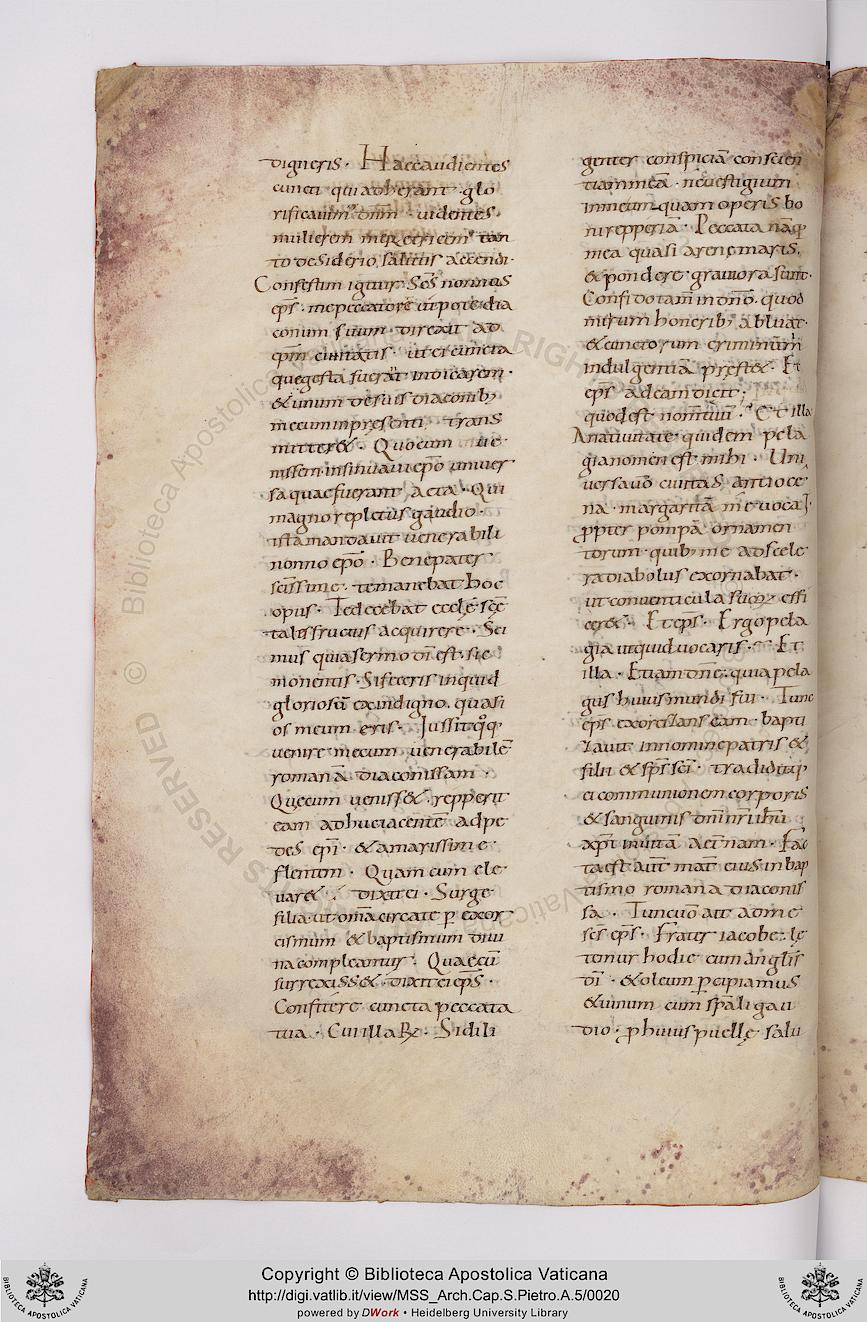 digneris · Haec audientes
cuncti qui adherant · glo
rificauer̄ dn̄m · uidentes
mulierem meretricem tan
to desiderio salutis accendi ·
Confestim igitur sc̄s nonnus
ep̄s · me peccatorē utpote dia
conum suum · direxit ad
ep̄m ciuitatis · ut ei cuncta
que gesta fuerāt indicarem ·
& unum de suis diaconib;
mecum in presenti trans
mitter& · Quocum ue
nissem · insinuaui ep̄o uniuer
sa quae fuerant acta · Qui
magno repletus gaudio ·
ista mandauit uenerabili
nonno ep̄o · Bene pater
sc̄issime · te manebat hoc
opus · Te decebat eccle sc̄e
tales fructus acquirere · Sci
mus quia sermo dī est · sic
monentis · Si feceris inquid
gloriosū ex indigno · quasi
os meum eris · Jussit q̄q;
uenire mecum uenerabilē
romanā diaconissam ·
Quęcumueniss& · repperit
eam adhuc iacentē ad pe
des ep̄i · & amarissime
flentem · Quam cum ele
uar& · dixit ei · Surge
filia · ut om̄a circa te p̄ exor
cismum & baptismum diui
na compleantur · Quae cū
surrexiss& · dixit ei ep̄s ·
Confitere cuncta peccata
tua · Cui illa R̄ · Si dili
genter conspiciā conscien
tiam meā · nec uestigium
in me umquam operis bo
ni repperiā · Peccata nāq;
mea quasi arenę maris
& pondere grauiora sunt ·
Confido tam̄ in dn̄o · quod
mirum honerib; abluat ·
& cunctorum criminum
indulgentiā prest& · Et
ep̄s ad eam dicit ;
quod est nom̄ tuū · Et illa
A natiuitate quidem pela
gia nomen est mihi · Uni
uersa uō ciuitas antioce
na · margaritā me uocat ·
ꝓpter pompā ornamen
torum · quib; me ad scele
ra diabolus exornabat ·
ut conuenticula suor̄ effi
cer& · Et ep̄s · Ergo pela
gia utquid uocaris · Et
illa · Etiam dn̄e · quia pela
gus huius mundi fui · Tunc
ep̄s exorcizans eam · bapti
zauit in nomine patris &
filii & sp̄s sc̄i · tradiditq;
ei communionem corporis
& sanguinis dn̄i nr̄i ihū
xp̄i in uitā aet̄nam · Fac
ta est aūt mat̄ eius in bap
tismo romana diaconis
sa · Tunc uō ait ad me
sc̄s ep̄s · Frater iacobe · lę
temur hodie cum anglis
dī · & oleum p̄cipiamus
& uinum cum sp̄ali gau
dio · ꝓ huius puellę salu
Copyright © Biblioteca Apostolica Vaticana
http://digi.vatlib.it/view/MSS_Arch.Cap.S.Pietro.A.5/0020
powered by DWork • Heidelberg University Library